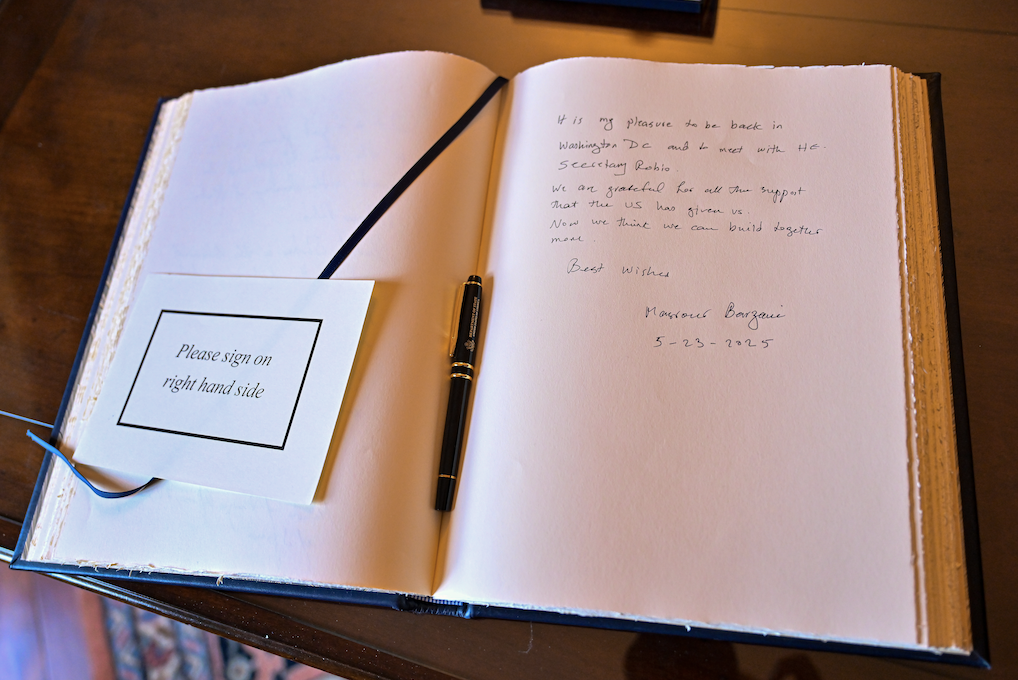 Please sign on
right hand side
It is my pleasure to be back in
Washington DC and to meet with HE.
Secretary Rubio.
We are grateful for all the support
that the US has given us.
Now we think we can build together
more.
Best Wishes
Masrour Barzani
5-23-2025